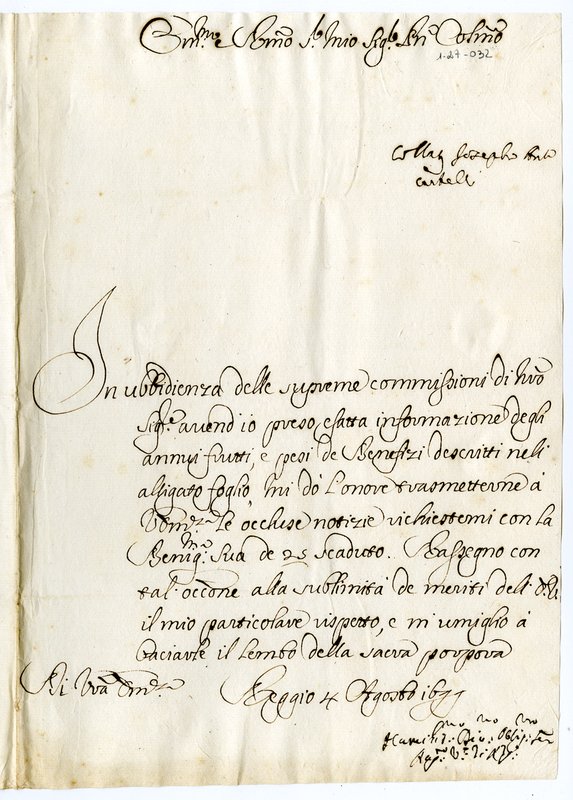 Em.mo e Rmo Sr. mio Sig.r Prn Colmo
1-27-032
Collaz Joseph Ant
Cartelli
In ubbidienza delle supreme commissioni di Nro
Sig.re avend io preso esatta informazione degli
annui frutti, e pesi de Benefizi descritti nell
alligato foglio, mi dò l'onore trasmetterne à
Vra Em.za le occluse notizie richiestemi con la
Benig.ma Sua de 25 scaduto. Rassegno con
tal' occone alla sublimità de meriti dell'
il mio particolare rispetto, e m'umiglio à
baciarle il lembo della sacra porpora
Di Vra Em.za Reggio 4 Agosto
Humiliss.mo Div.mo Oblig.mo Ser
Aug.